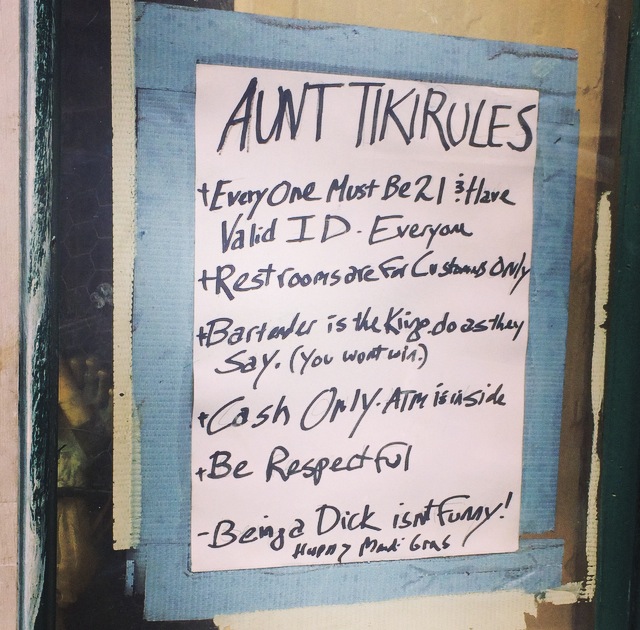 AUNT TIKI RULES
+ EveryOne Must Be 21 & Have
Valid ID. Everyone
+ Restrooms are For Customers Only
+ Bartender is the King. do as they
Say. (You wont win.)
+ Cash Only. ATM is inside
+ Be Respectful
- Being a Dick isnt Funny!
Happy Mardi Gras